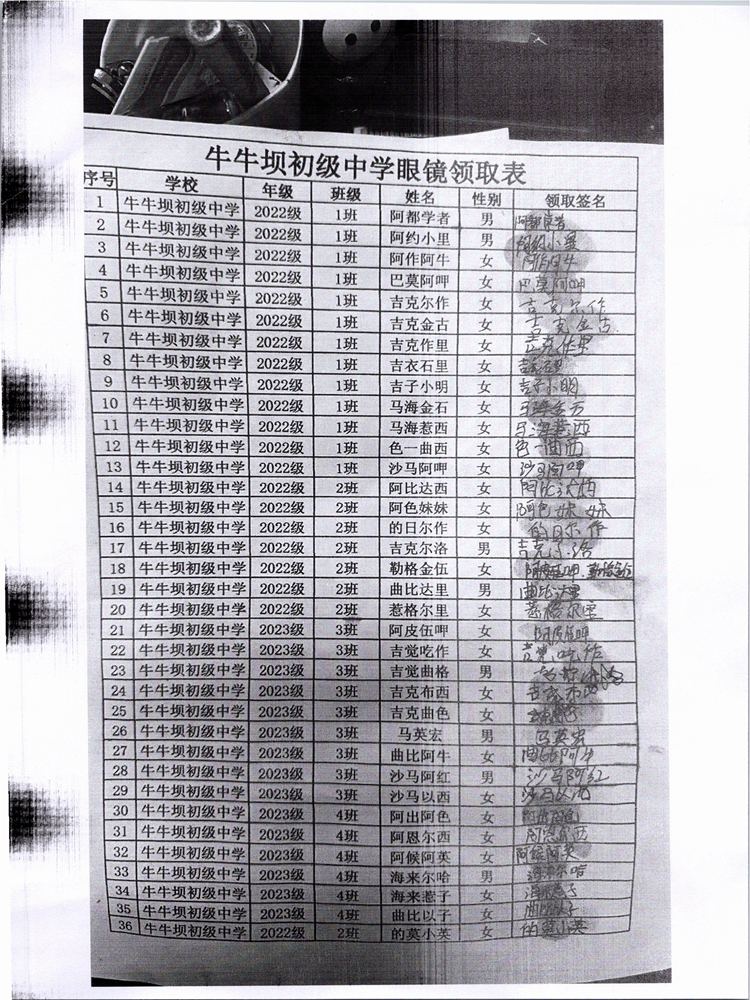 牛牛坝初级中学眼镜领取表
序号 学校 年级 班级 姓名 性别 领取签名
1 牛牛坝初级中学 2022级 1班 阿都学者 男
2 牛牛坝初级中学 2022级 1班 阿约小里 男 阿约小里
3 牛牛坝初级中学 2022级 1班 阿作阿牛 女 阿作阿牛
4 牛牛坝初级中学 2022级 1班 巴莫阿呷 女 巴莫阿呷
5 牛牛坝初级中学 2022级 1班 吉克尔作 女 吉克尔作
6 牛牛坝初级中学 2022级 1班 吉克金古 女 吉克金古.
7 牛牛坝初级中学 2022级 1班 吉克作里 女 吉克作里
8 牛牛坝初级中学 2022级 1班 吉衣石里 女
9 牛牛坝初级中学 2022级 1班 吉子小明 女 吉子小明
10 牛牛坝初级中学 2022级 1班 马海金石 女 马海金石
11 牛牛坝初级中学 2022级 1班 马海惹西 女 马海惹西
12 牛牛坝初级中学 2022级 1班 色一曲西 女 色一曲西
13 牛牛坝初级中学 2022级 1班 沙马阿呷 女 沙马阿呷
14 牛牛坝初级中学 2022级 2班 阿比达西 女 阿比达西
15 牛牛坝初级中学 2022级 2班 阿色妹妹 女 阿色妹妹
16 牛牛坝初级中学 2022级 2班 的日尔作 女 的日尔作
17 牛牛坝初级中学 2022级 2班 吉克尔洛 男 吉克尔洛
18 牛牛坝初级中学 2022级 2班 勒格金伍 女
19 牛牛坝初级中学 2022级 2班 曲比达里 男 曲比达里
20 牛牛坝初级中学 2022级 2班 惹格尔里 女 惹格尔里
21 牛牛坝初级中学 2023级 3班 阿皮伍呷 女 阿皮伍呷
22 牛牛坝初级中学 2023级 3班 吉觉吃作 女 吉觉吃作
23 牛牛坝初级中学 2023级 3班 吉觉曲格 男
24 牛牛坝初级中学 2023级 3班 吉克布西 女 吉克布西
25 牛牛坝初级中学 2023级 3班 吉克曲色 女
26 牛牛坝初级中学 2023级 3班 马英宏 男 马英宏
27 牛牛坝初级中学 2023级 3班 曲比阿牛 女 曲比阿牛
28 牛牛坝初级中学 2023级 3班 沙马阿红 男 沙马阿红
29 牛牛坝初级中学 2023级 3班 沙马以西 女 沙马以西
30 牛牛坝初级中学 2023级 4班 阿出阿色 女
31 牛牛坝初级中学 2023级 4班 阿恩尔西 女 阿恩尔西
32 牛牛坝初级中学 2023级 4班 阿候阿英 女 阿候阿英
33 牛牛坝初级中学 2023级 4班 海来尔哈 男 海来尔哈
34 牛牛坝初级中学 2023级 4班 海来惹子 女
35 牛牛坝初级中学 2023级 4班 曲比以子 女
36 牛牛坝初级中学 2022级 2班 的莫小英 女 的莫小英